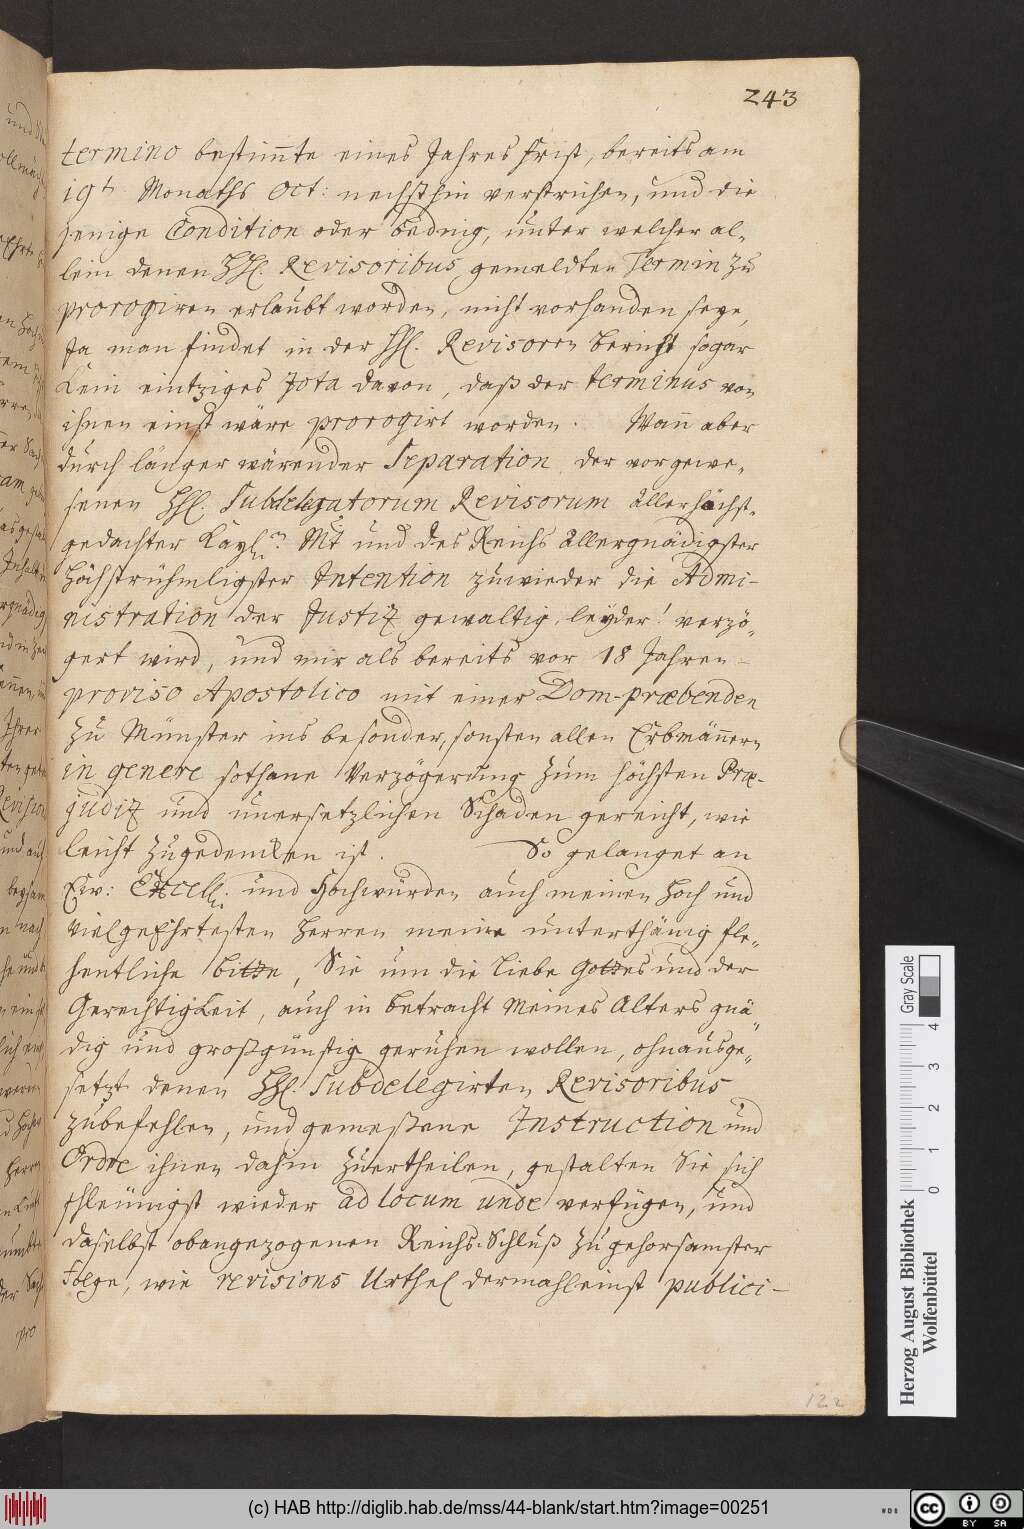 243
termino bestim̄te eines Jahres frist, bereits am
19t Monaths Oct: nechsthin verstrichen, und die
jenige Condition oder bedng, unter welcher al-
lein denen HH. Revisoribus gemeldten Termin zu
prorogiren erlaubt worden, nicht vorhanden seye,
Ja man findet in der HH. Revisoren bericht sogar
kein eintziges Jota davon, daß der terminus von
ihnen einst wäre prorogirt worden. Wan̄ aber
durch länger wärender Separation der vorgewe-
senen HH. Subdelegatorum Revisorum allerhöchst-
gedachter Kayln Mt und des Reichs allergnädigster
höchstrühmligster Intention zuwieder die Admi-
nistration der Justiz gewaltig, leyder! verzö-
gert wird, und mir als bereits vor 18 Jahren
proviso Apostolico mit einer Dom-præbenden
zu Münster ins besonder, sonsten allen Erbmän̄ern
in genere sothane Verzögerung zum höchsten Præ-
judiz und unersetzlichen Schaden gereicht, wie
leicht zugedencken ist. So gelanget an
Ew: Excell: und Hochwürden auch meinen Hoch und
vielgeehrtesten Herren meine unterthänig fle-
hentliche bitte, Sie um die liebe Gottes und der
Gerechtigkeit, auch in betracht meines Alters gnä-
dig und großgünstig geruhen wollen, ohnausge-
setzt denen HH. Subdelegirten Revisoribus
zubefehlen, und gemeßene Instruction und
Ordre ihnen dahin zuertheilen, gestalten Sie sich
schleunigst wieder ad locum unde verfügen, und
daselbst obangezogenen Reichs-Schluß zu gehorsamster
folge, wie revisions Urthel dermahleinst publici-
122
Gray Scale
0 1 2 3 4
Herzog August Bibliothek
Wolfenbüttel
(c) HAB http://diglib.hab.de/mss/44-blank/start.htm?image=00251
WDB
cc BY SA